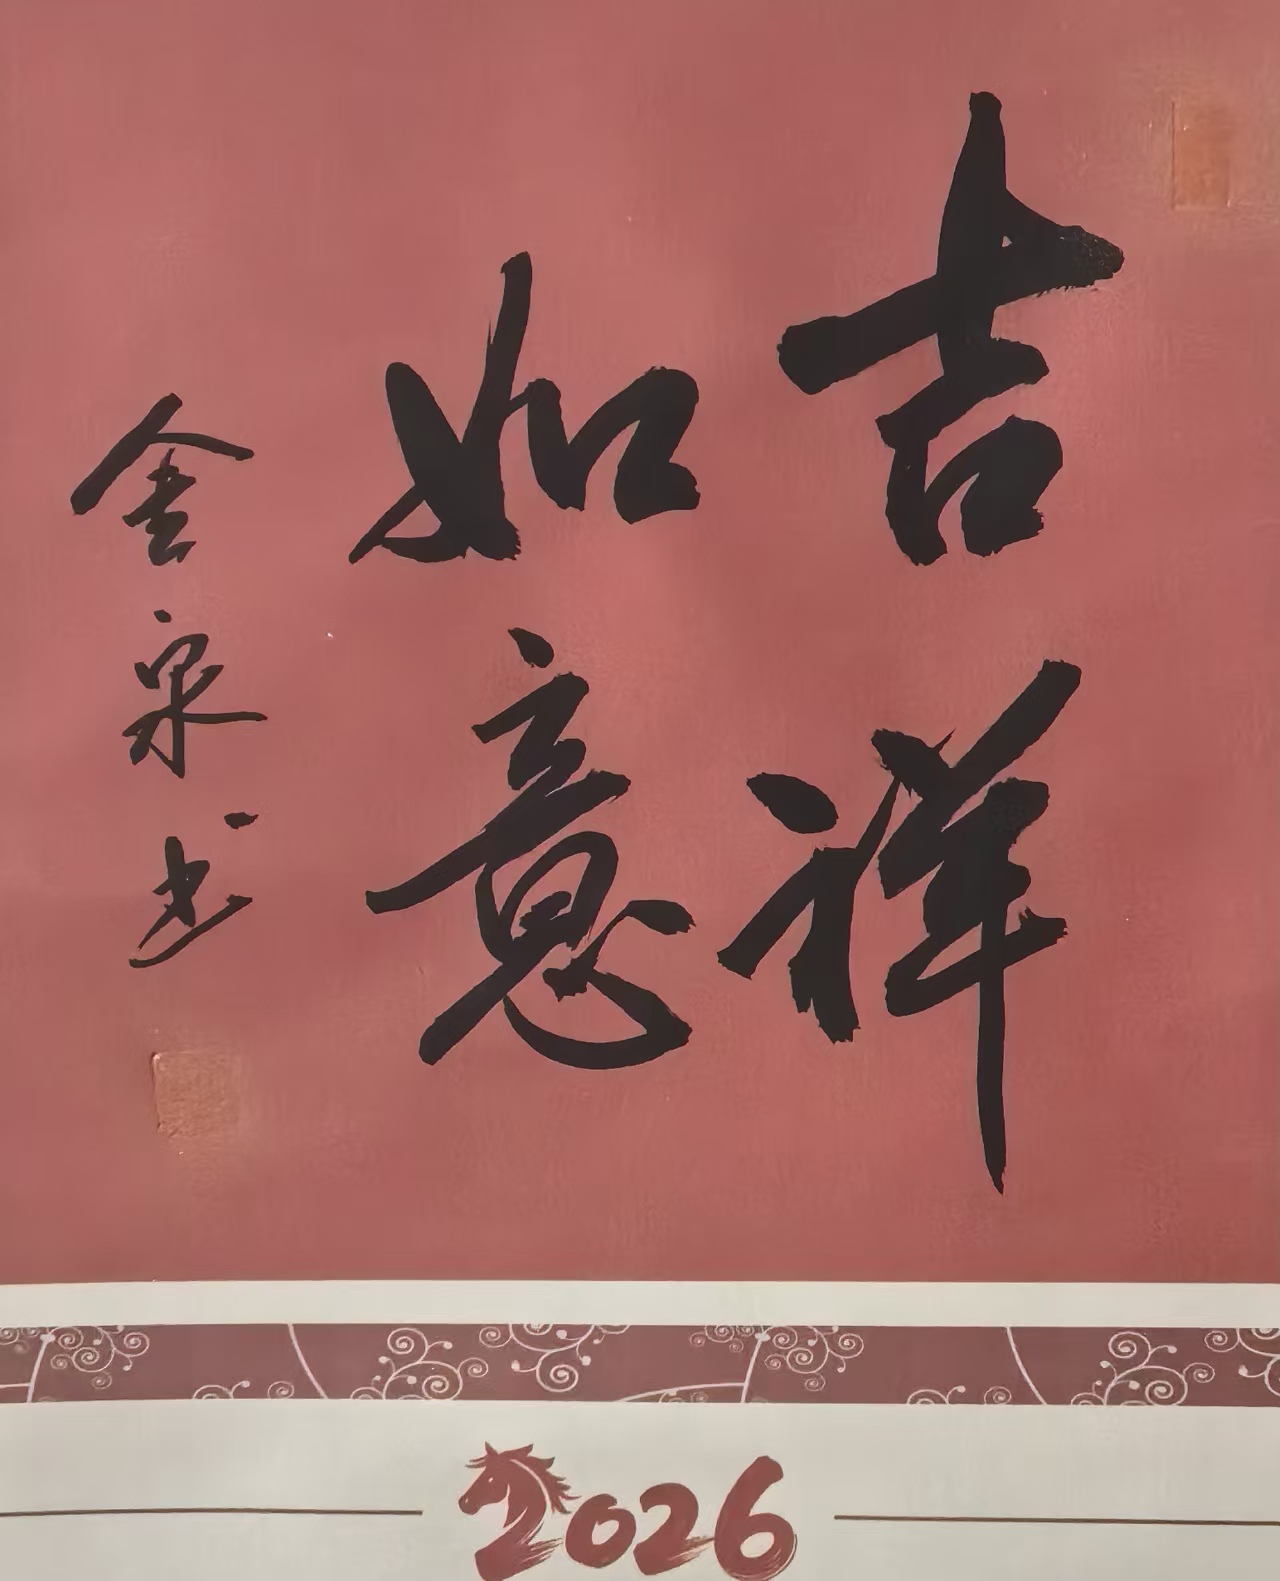 吉祥
如意
金泉书
2026